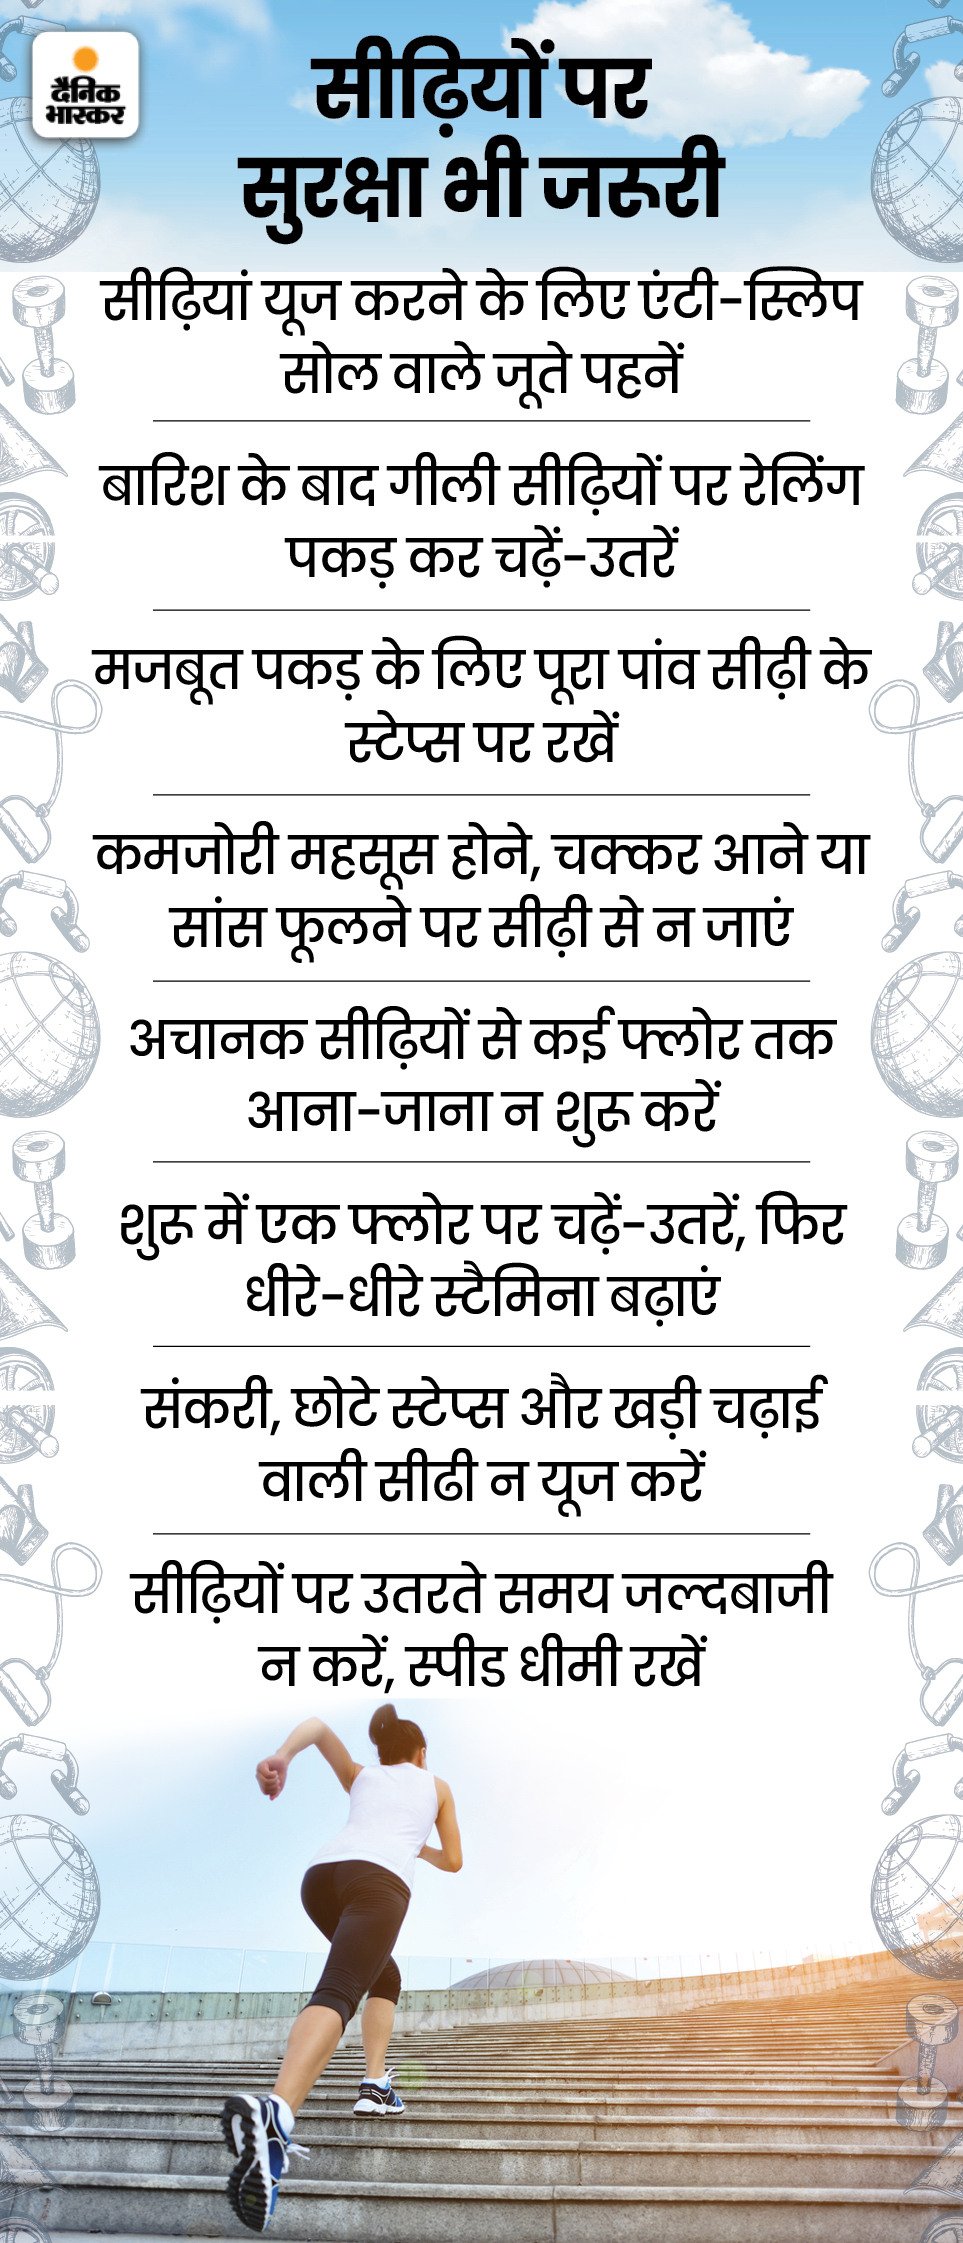 दैनिक
भास्कर
सीढ़ियों पर
सुरक्षा भी जरूरी
सीढ़ियां यूज करने के लिए एंटी-स्लिप
सोल वाले जूते पहनें
बारिश के बाद गीली सीढ़ियों पर रेलिंग
पकड़ कर चढ़ें-उतरें
मजबूत पकड़ के लिए पूरा पांव सीढ़ी के
स्टेप्स पर रखें
कमजोरी महसूस होने, चक्कर आने या
सांस फूलने पर सीढ़ी से न जाएं
अचानक सीढ़ियों से कई फ्लोर तक
आना-जाना न शुरू करें
शुरू में एक फ्लोर पर चढ़ें-उतरें, फिर
धीरे-धीरे स्टैमिना बढ़ाएं
संकरी, छोटे स्टेप्स और खड़ी चढ़ाई
वाली सीढी न यूज करें
सीढ़ियों पर उतरते समय जल्दबाजी
न करें, स्पीड धीमी रखें